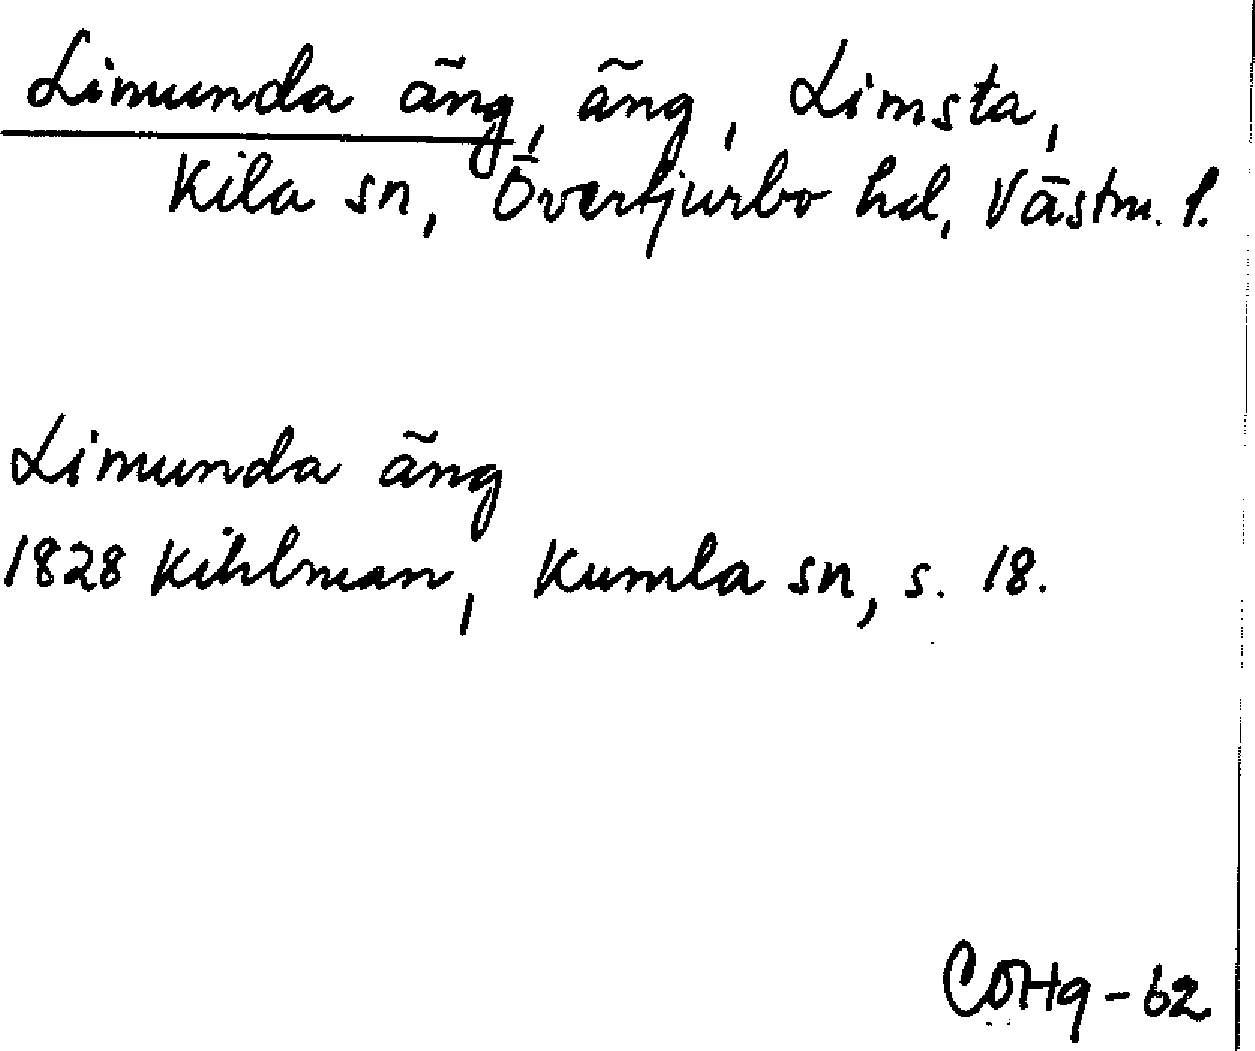 Limunda äng, äng, Limsta,
Kila sn, Övertjurbo hd, Västm. l.
Limunda äng
1828 Kihlman, Kumla sn, s. 18.
COHg-62